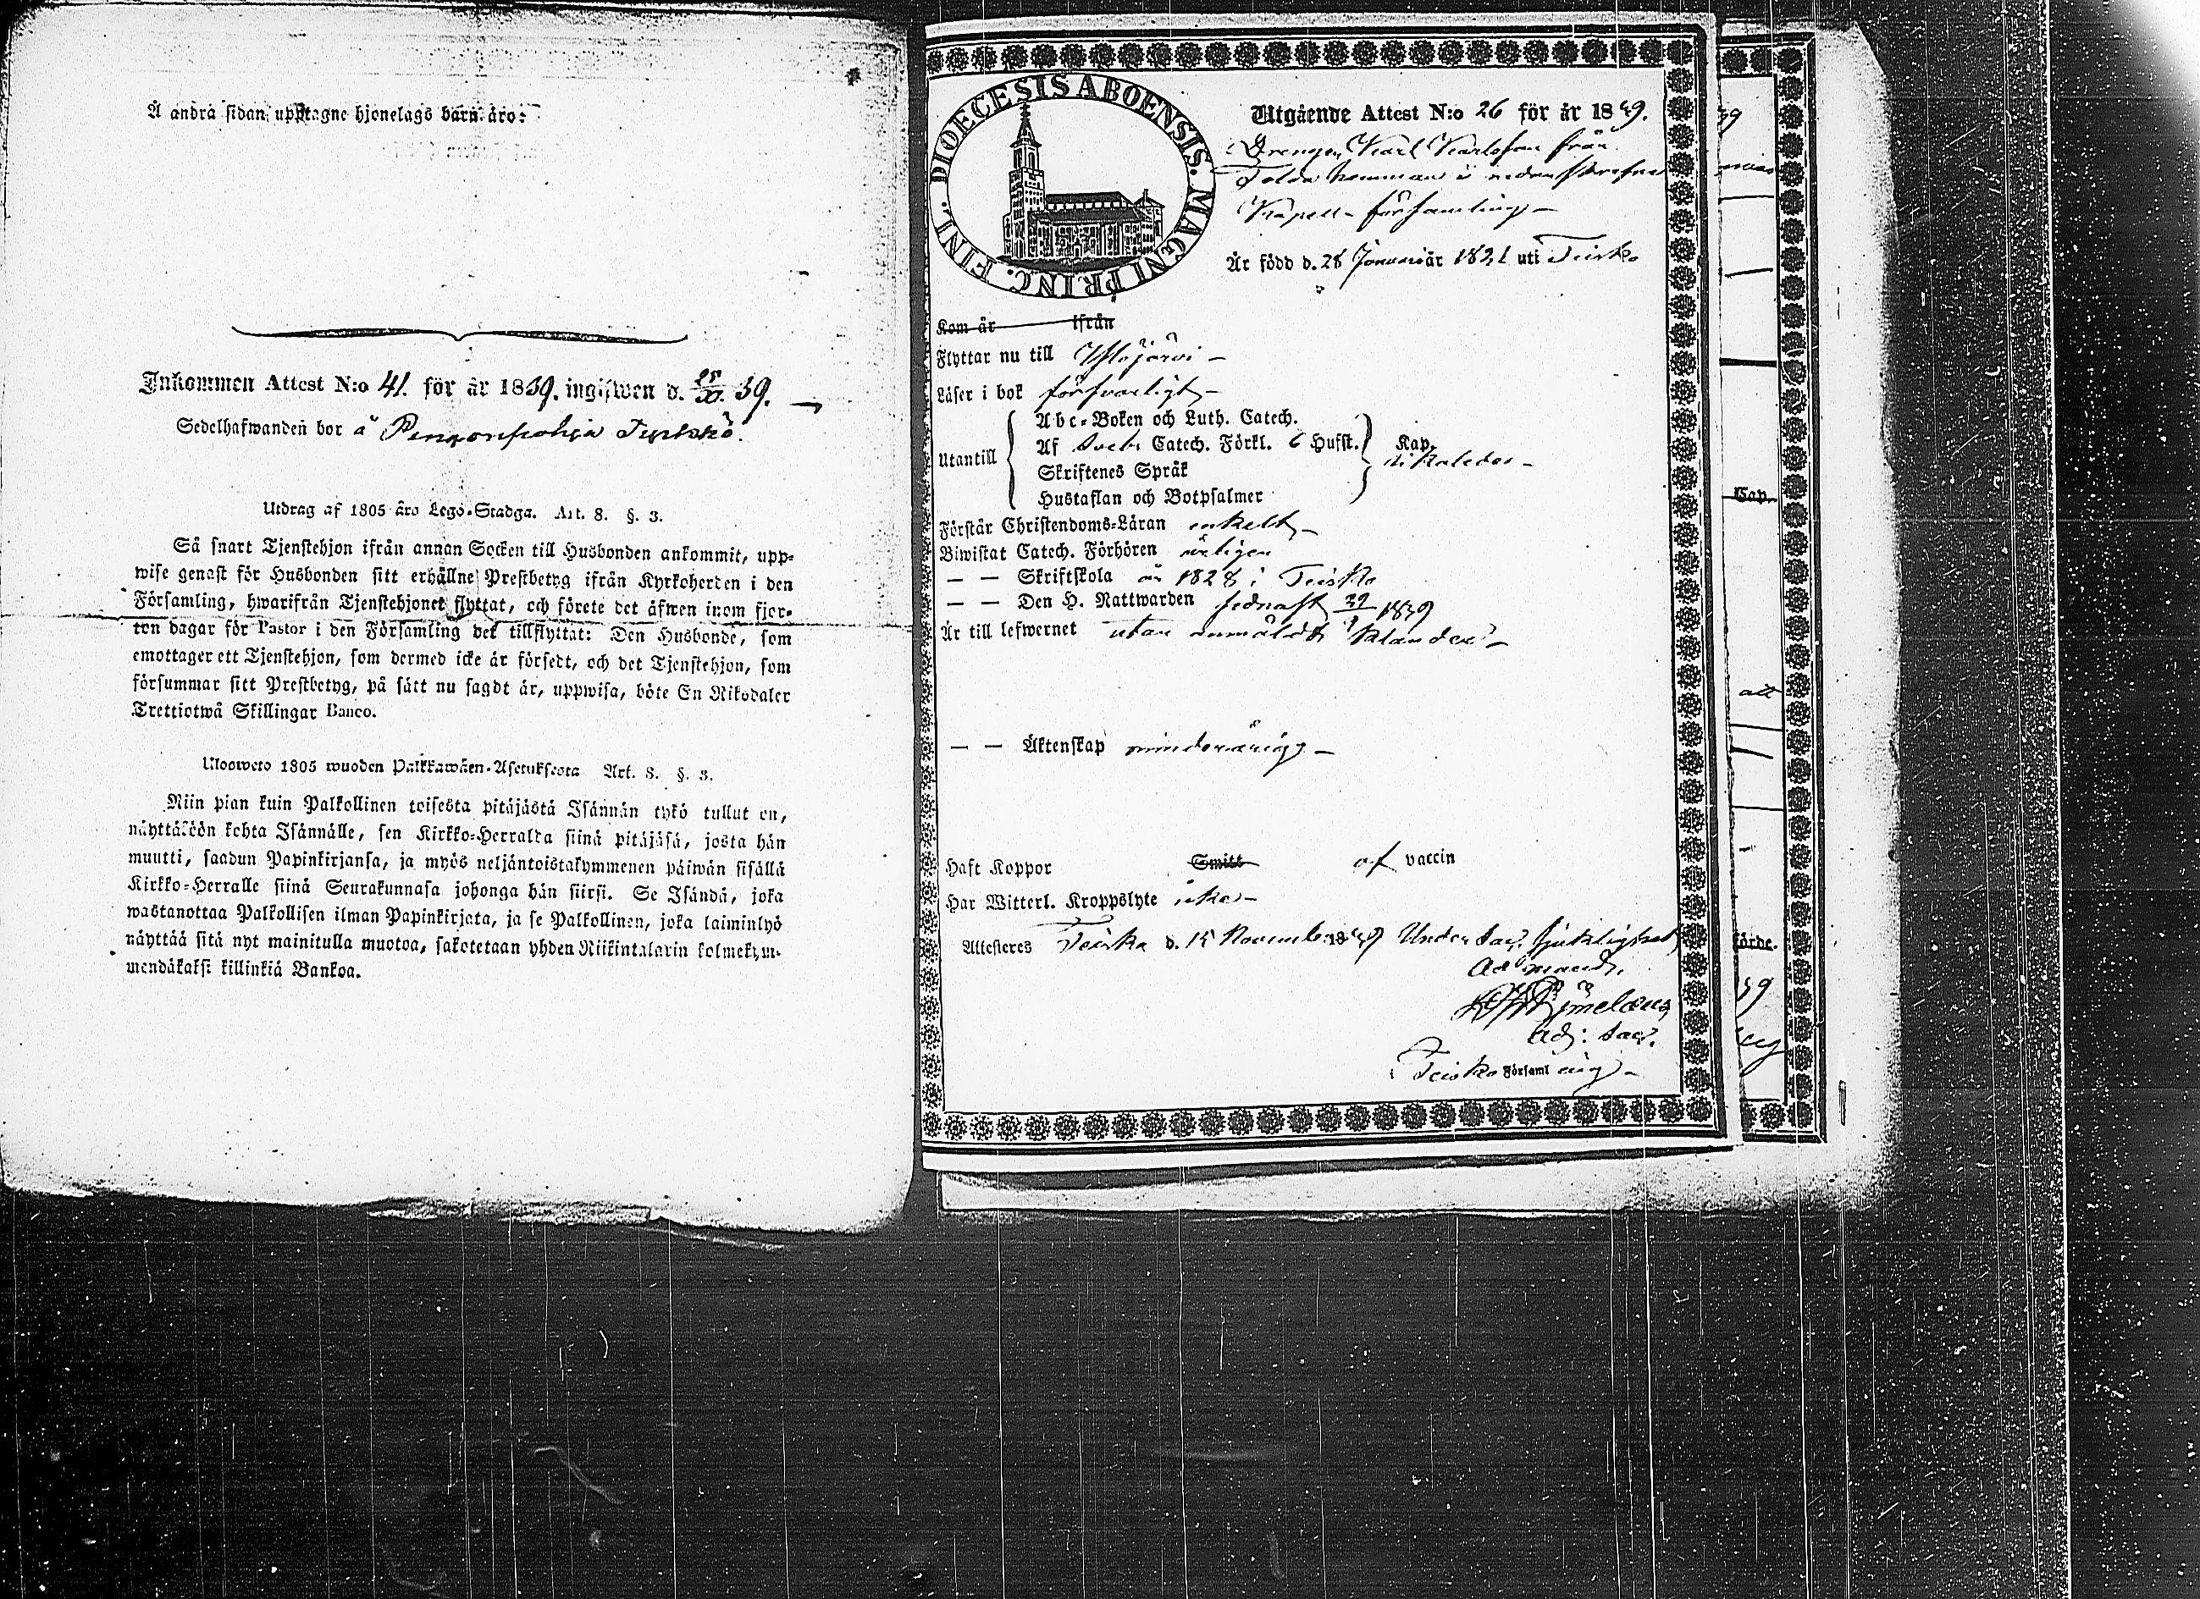 Å andra sidan upptagne hjonelags barn äro:
Inkommen Attest N:o 41. för år 1839. ingifwen d. 39.
Sedelhafwanden bor å
Utdrag af 1805 års Lego-Stadga. Art. 8. §. 3.
Så snart Tjenstehjon ifrån annan Socken till Husbonden ankommit, upp-
wise genast för Husbonden sitt erhållne Prestbetyg ifrån Kyrkoherden i den
Församling, hwarifrån Tjenstehjonet flyttat, och förete det äfwen inom fjor-
ton dagar för Pastor i den Församling det tillflyttat: Den Husbonde, som
emottager ett Tjenstehjon, som dermed icke är försedt, och det Tjenstehjon, som
försummar sitt Prestbetyg, på sätt nu sagdt är, uppwisa, böte En Riksdaler
Trettiotwå Skillingar Banco.
Ulosweto 1805 wuoden Palkkawäen-Asetuksesta Art. 8. §. 3.
Niin pian kuin Palkollinen toisesta pitäjästä Isännän tykö tullut on,
näyttäköön kohta Isännälle, sen Kirkko-Herralta siinä pitäjäsä, josta hän
muutti, saadun Papinkirjansa, ja myös neljäntoistakymmenen päiwän sisällä
Kirkko-Herralle siinä Seurakunnasa johonga hän siirsi. Se Isändä, joka
wastanottaa Palkollisen ilman Papinkirjata, ja se Palkollinen, joka laiminlyö
näyttää sitä nyt mainitulla muotoa, sakotetaan yhden Riikintalarin kolmekym-
mendäkaksi killinkiä Bankoa.
DIOECESIS ABOENSIS. MAGNI PRINC. FINL.
Utgående Attest N:o 26 för år 1839.
Drengen Karl Karlsson från
hemman i
Kapell-församling-
Är född d. 28 Januarii år 1821 uti Teisko
Kom år ifrån
Flyttar nu till Ylöjärvi-
Läser i bok försvarligt-
Utantill
Abc-Boken och Luth. Catech.
Af Sveb. Catech. Förkl. 6 Hufst. Kap.
Skriftenes Språk
Hustaflan och Botpsalmer
Förstår Christendoms-Läran enkelt-
Biwistat Catech. Förhören årligen
— — Skriftskola år 1828 i Teisko
— — Den H. Nattwarden sednast 1839
Är till lefwernet utan anmäldt klander-
— — Äktenskap minderårig-
Haft Koppor Smitt af vaccin
Har Witterl. Kroppslyte icke-
Attesteras Teisko d. 15 November 1839 Under Sac. sjuklighet
Ad mand.
Adj: Sac.
Teisko Församling-
Cap.